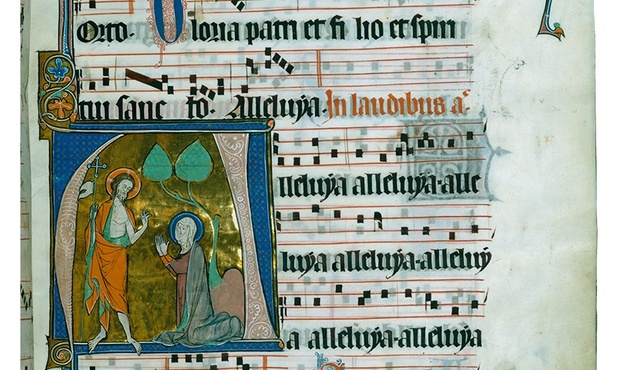 Orto. Gloria patri et fi lio et spiri
tui sanc to. Alleluya. In laudibus aͣ.
Alleluya alleluya. alle
luya alleluya. alleluy
a alleluya. alleluya